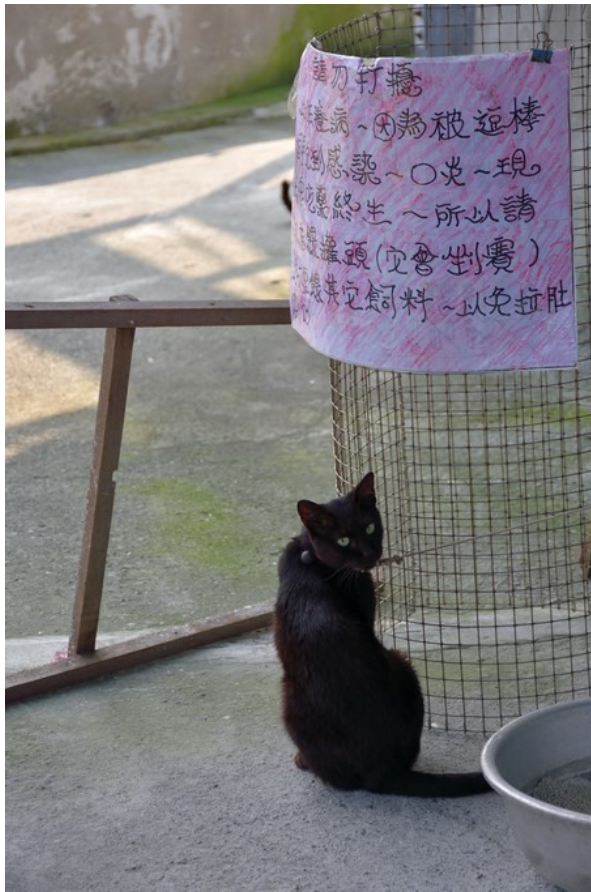 請勿打擾
病~因為被逗棒
到感染~〇炎~現
終生~所以請
罐頭(它會剉賽)
其它飼料~以免拉肚